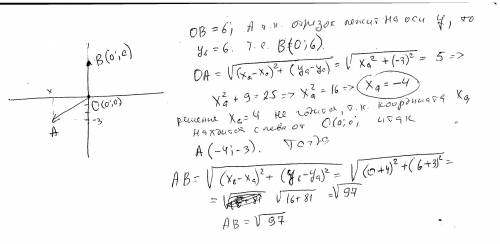 B(0;0)
x
O(0;0)
A
-3
OB = 6; А т.к. отрезок лежит на оси y, то
y_B = 6. т.е. B(0;6).
OA = √((x_A - x_0)² + (y_A - y_0)²) = √(x_A² + (-3)²) = 5 =>
x_A² + 9 = 25 => x_A² = 16 => x_A = -4
решение x_A = 4 не годится, т.к. координата x_A
находится слева от O(0;0), итак
A(-4;-3). Тогда
AB = √((x_B - x_A)² + (y_B - y_A)²) = √((0+4)² + (6+3)²) =
= √(16+81) = √97
AB = √97